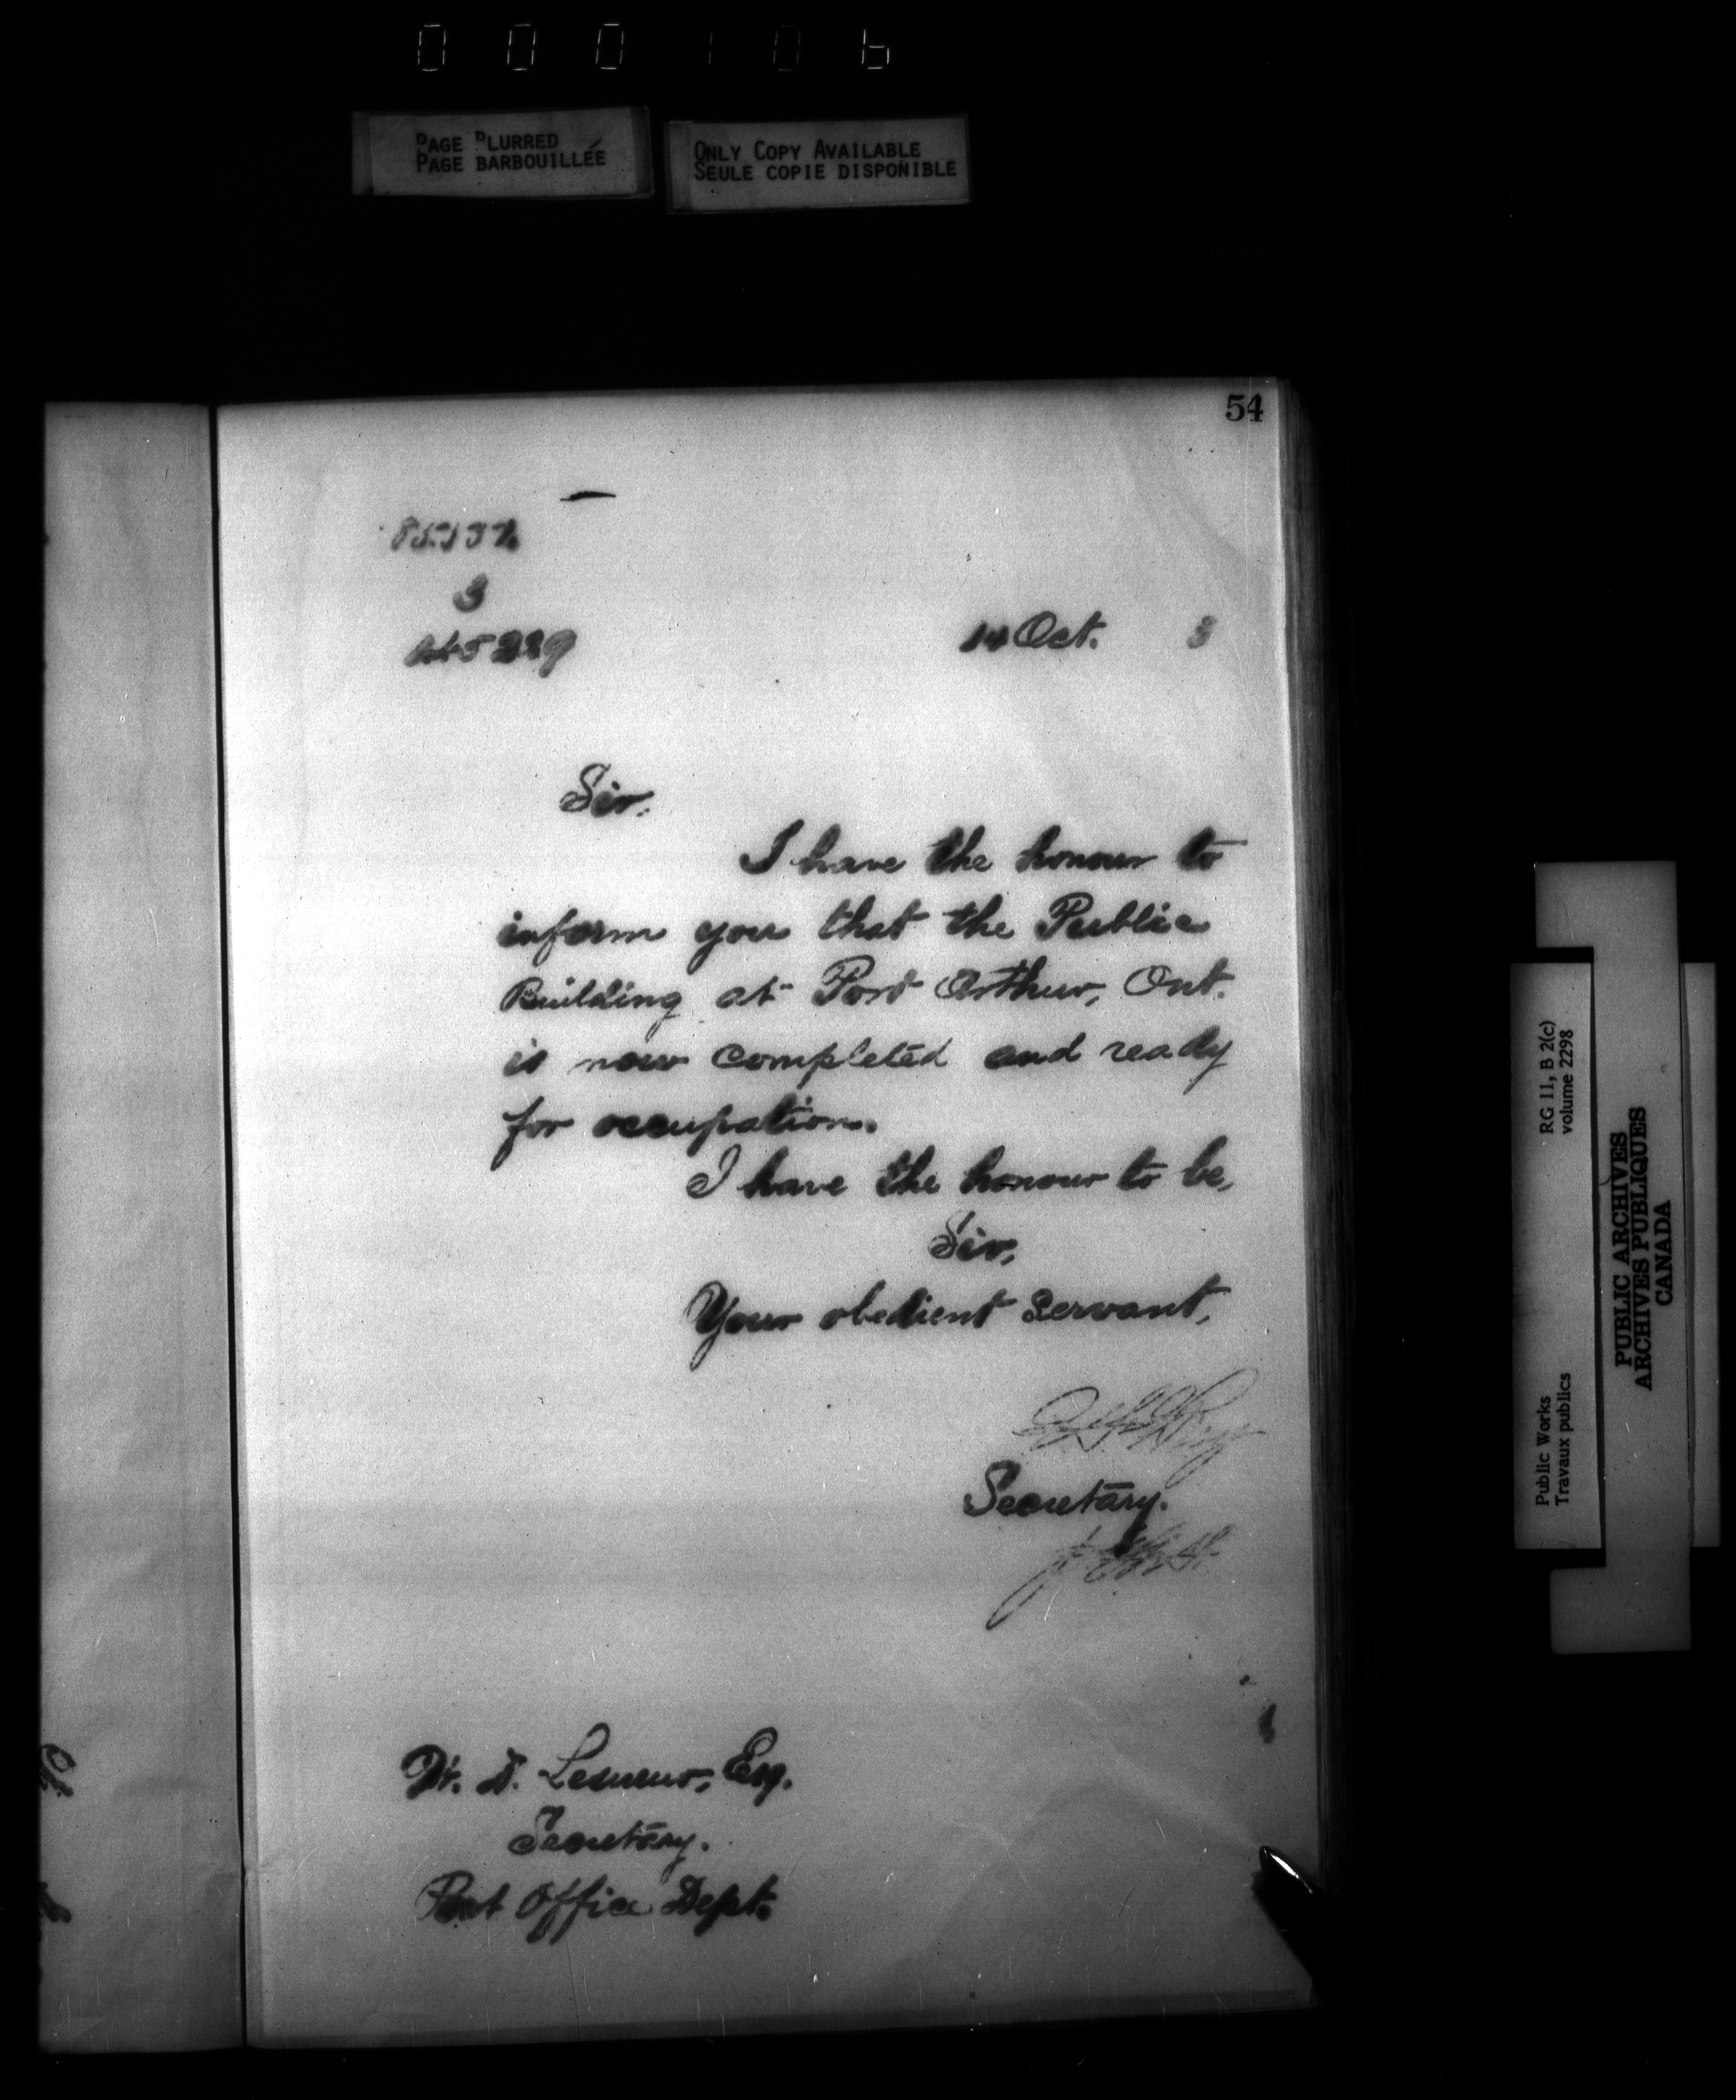 000106
PAGE BLURRED
PAGE BARBOUILLÉE
ONLY COPY AVAILABLE
SEULE COPIE DISPONIBLE
54
3
14 Oct. 3
Sir,
I have the honour to
inform you that the Public
Building at Port Arthur, Ont.
is now completed and ready
for occupation.
I have the honour to be,
Sir,
Your obedient servant,
Secretary.
W. D. Lesueur, Esq.
Secretary.
Post Office Dept.
RG 11, B 2(c)
volume 2298
Public Works
Travaux publics
PUBLIC ARCHIVES
ARCHIVES PUBLIQUES
CANADA